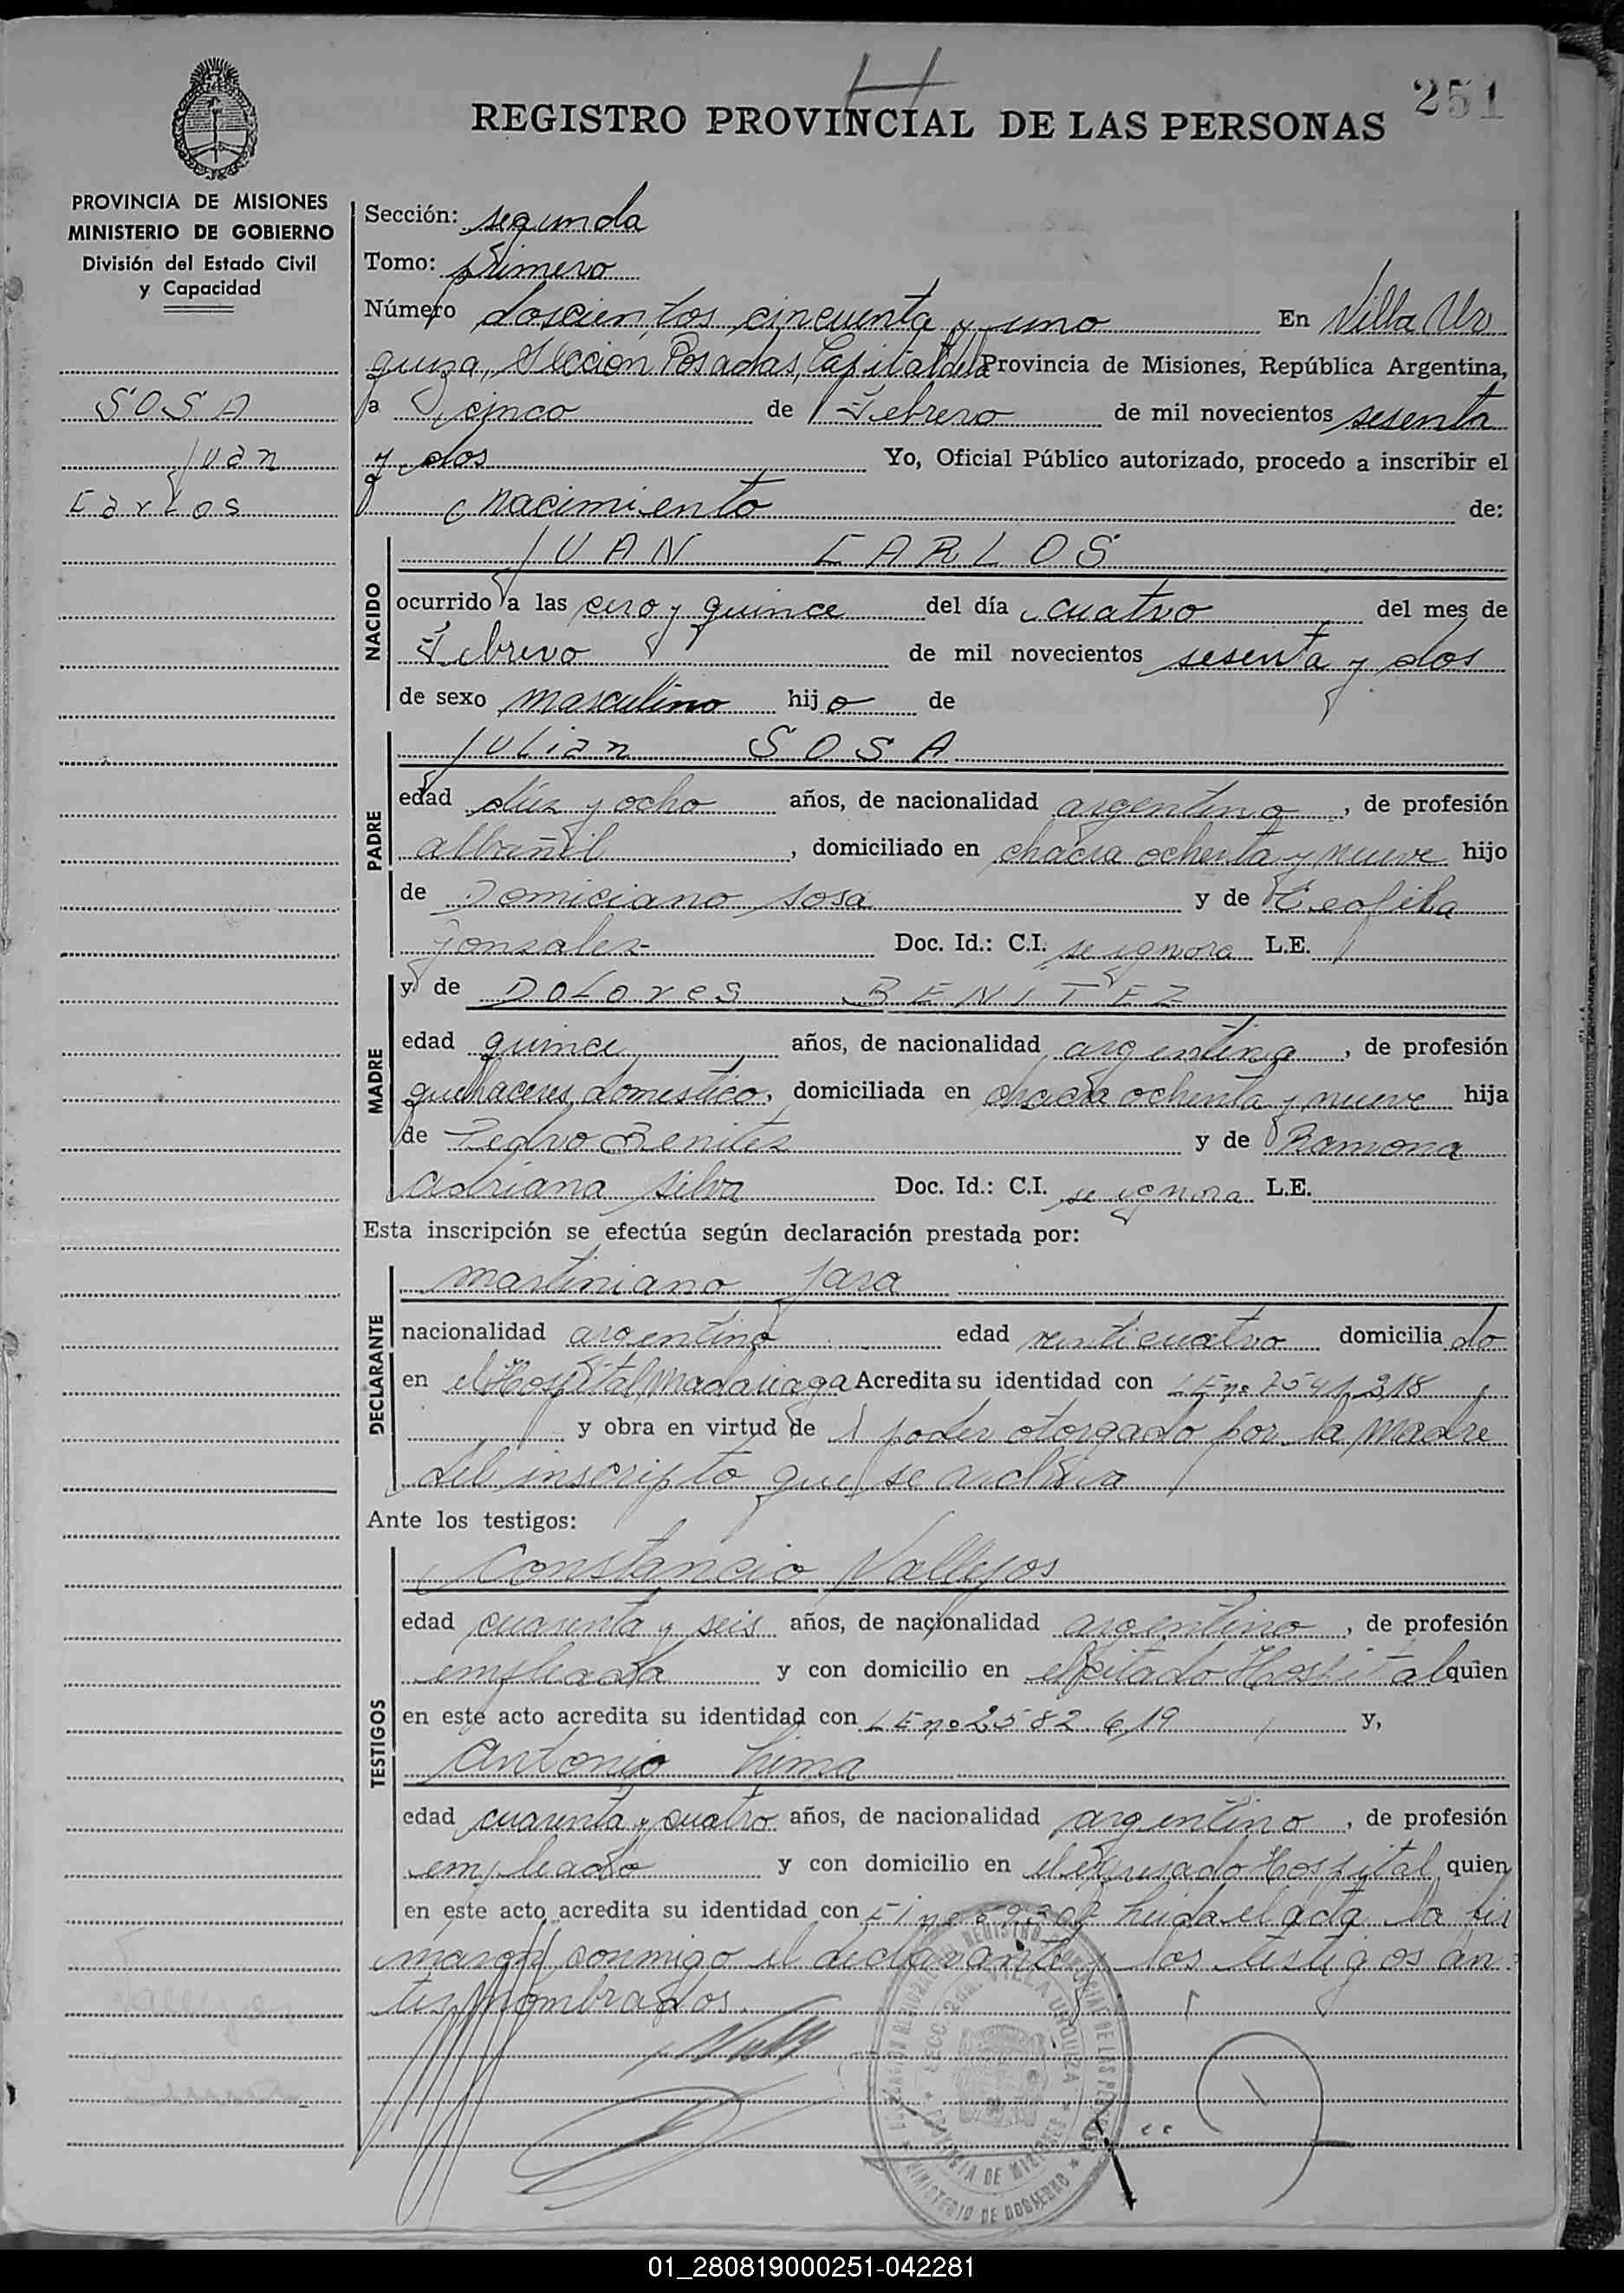 251
REGISTRO PROVINCIAL DE LAS PERSONAS
PROVINCIA DE MISIONES
MINISTERIO DE GOBIERNO
División del Estado Civil
y Capacidad
SOSA
Juan
Carlos
Sección: segunda
Tomo: primero
Número doscientos cincuenta y uno En Villa Ur
quiza, Sección Posadas, Capital de la Provincia de Misiones, República Argentina,
a cinco de Febrero de mil novecientos sesenta
y dos Yo, Oficial Público autorizado, procedo a inscribir el
nacimiento de:
NACIDO
JUAN CARLOS
ocurrido a las cero y quince del día cuatro del mes de
Febrero de mil novecientos sesenta y dos
de sexo masculino hijo de
PADRE
Julian SOSA
edad diez y ocho años, de nacionalidad argentino, de profesión
albañil, domiciliado en chacra ochenta y nueve hijo
de Domiciano Sosa y de Teofila
Gonzalez Doc. Id.: C.I. se ignora L.E.
MADRE
y de Dolores BENITEZ
edad quince años, de nacionalidad argentina, de profesión
quehaceres domestico, domiciliada en chacra ochenta y nueve hija
de Pedro Benitez y de Ramona
Adriana Silva Doc. Id.: C.I. se ignora L.E.
Esta inscripción se efectúa según declaración prestada por:
DECLARANTE
Martiniano Jara
nacionalidad argentino edad veinticuatro domiciliado
en el Hospital Madariaga Acredita su identidad con LE nº 7541.318
y obra en virtud de poder otorgado por la madre
del inscripto que se archiva
Ante los testigos:
TESTIGOS
Constancio Vallejos
edad cuarenta y seis años, de nacionalidad argentino, de profesión
empleado y con domicilio en el citado Hospital quien
en este acto acredita su identidad con LE nº 2582.619 y,
Antonio Lima
edad cuarenta y cuatro años, de nacionalidad argentino, de profesión
empleado y con domicilio en el expresado Hospital quien
en este acto acredita su identidad con Leida el acta la fir
maron conmigo el declarante y los testigos an
tes nombrados.
SECC. 2da. VILLA URQUIZA
PROVINCIA DE MISIONES
MINISTERIO DE GOBIERNO
01_280819000251-042281